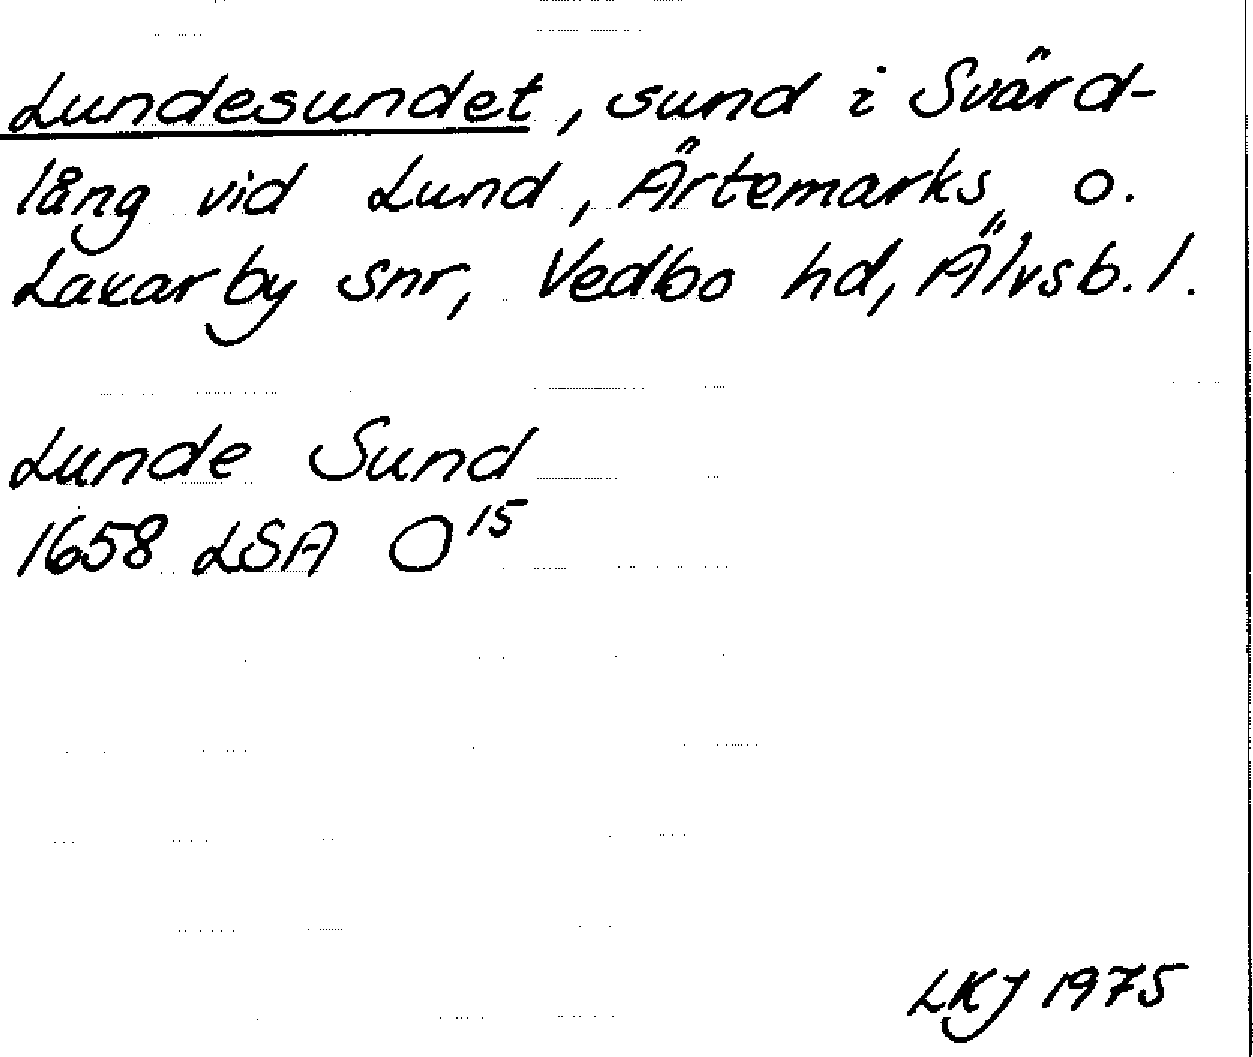 Lundesundet, sund i Svärd-
lång vid Lund, Ärtemarks o.
Laxarby snr, Vedbo hd, Älvsb. l.
Lunde Sund
1658 LSA O¹⁵
LKJ 1975